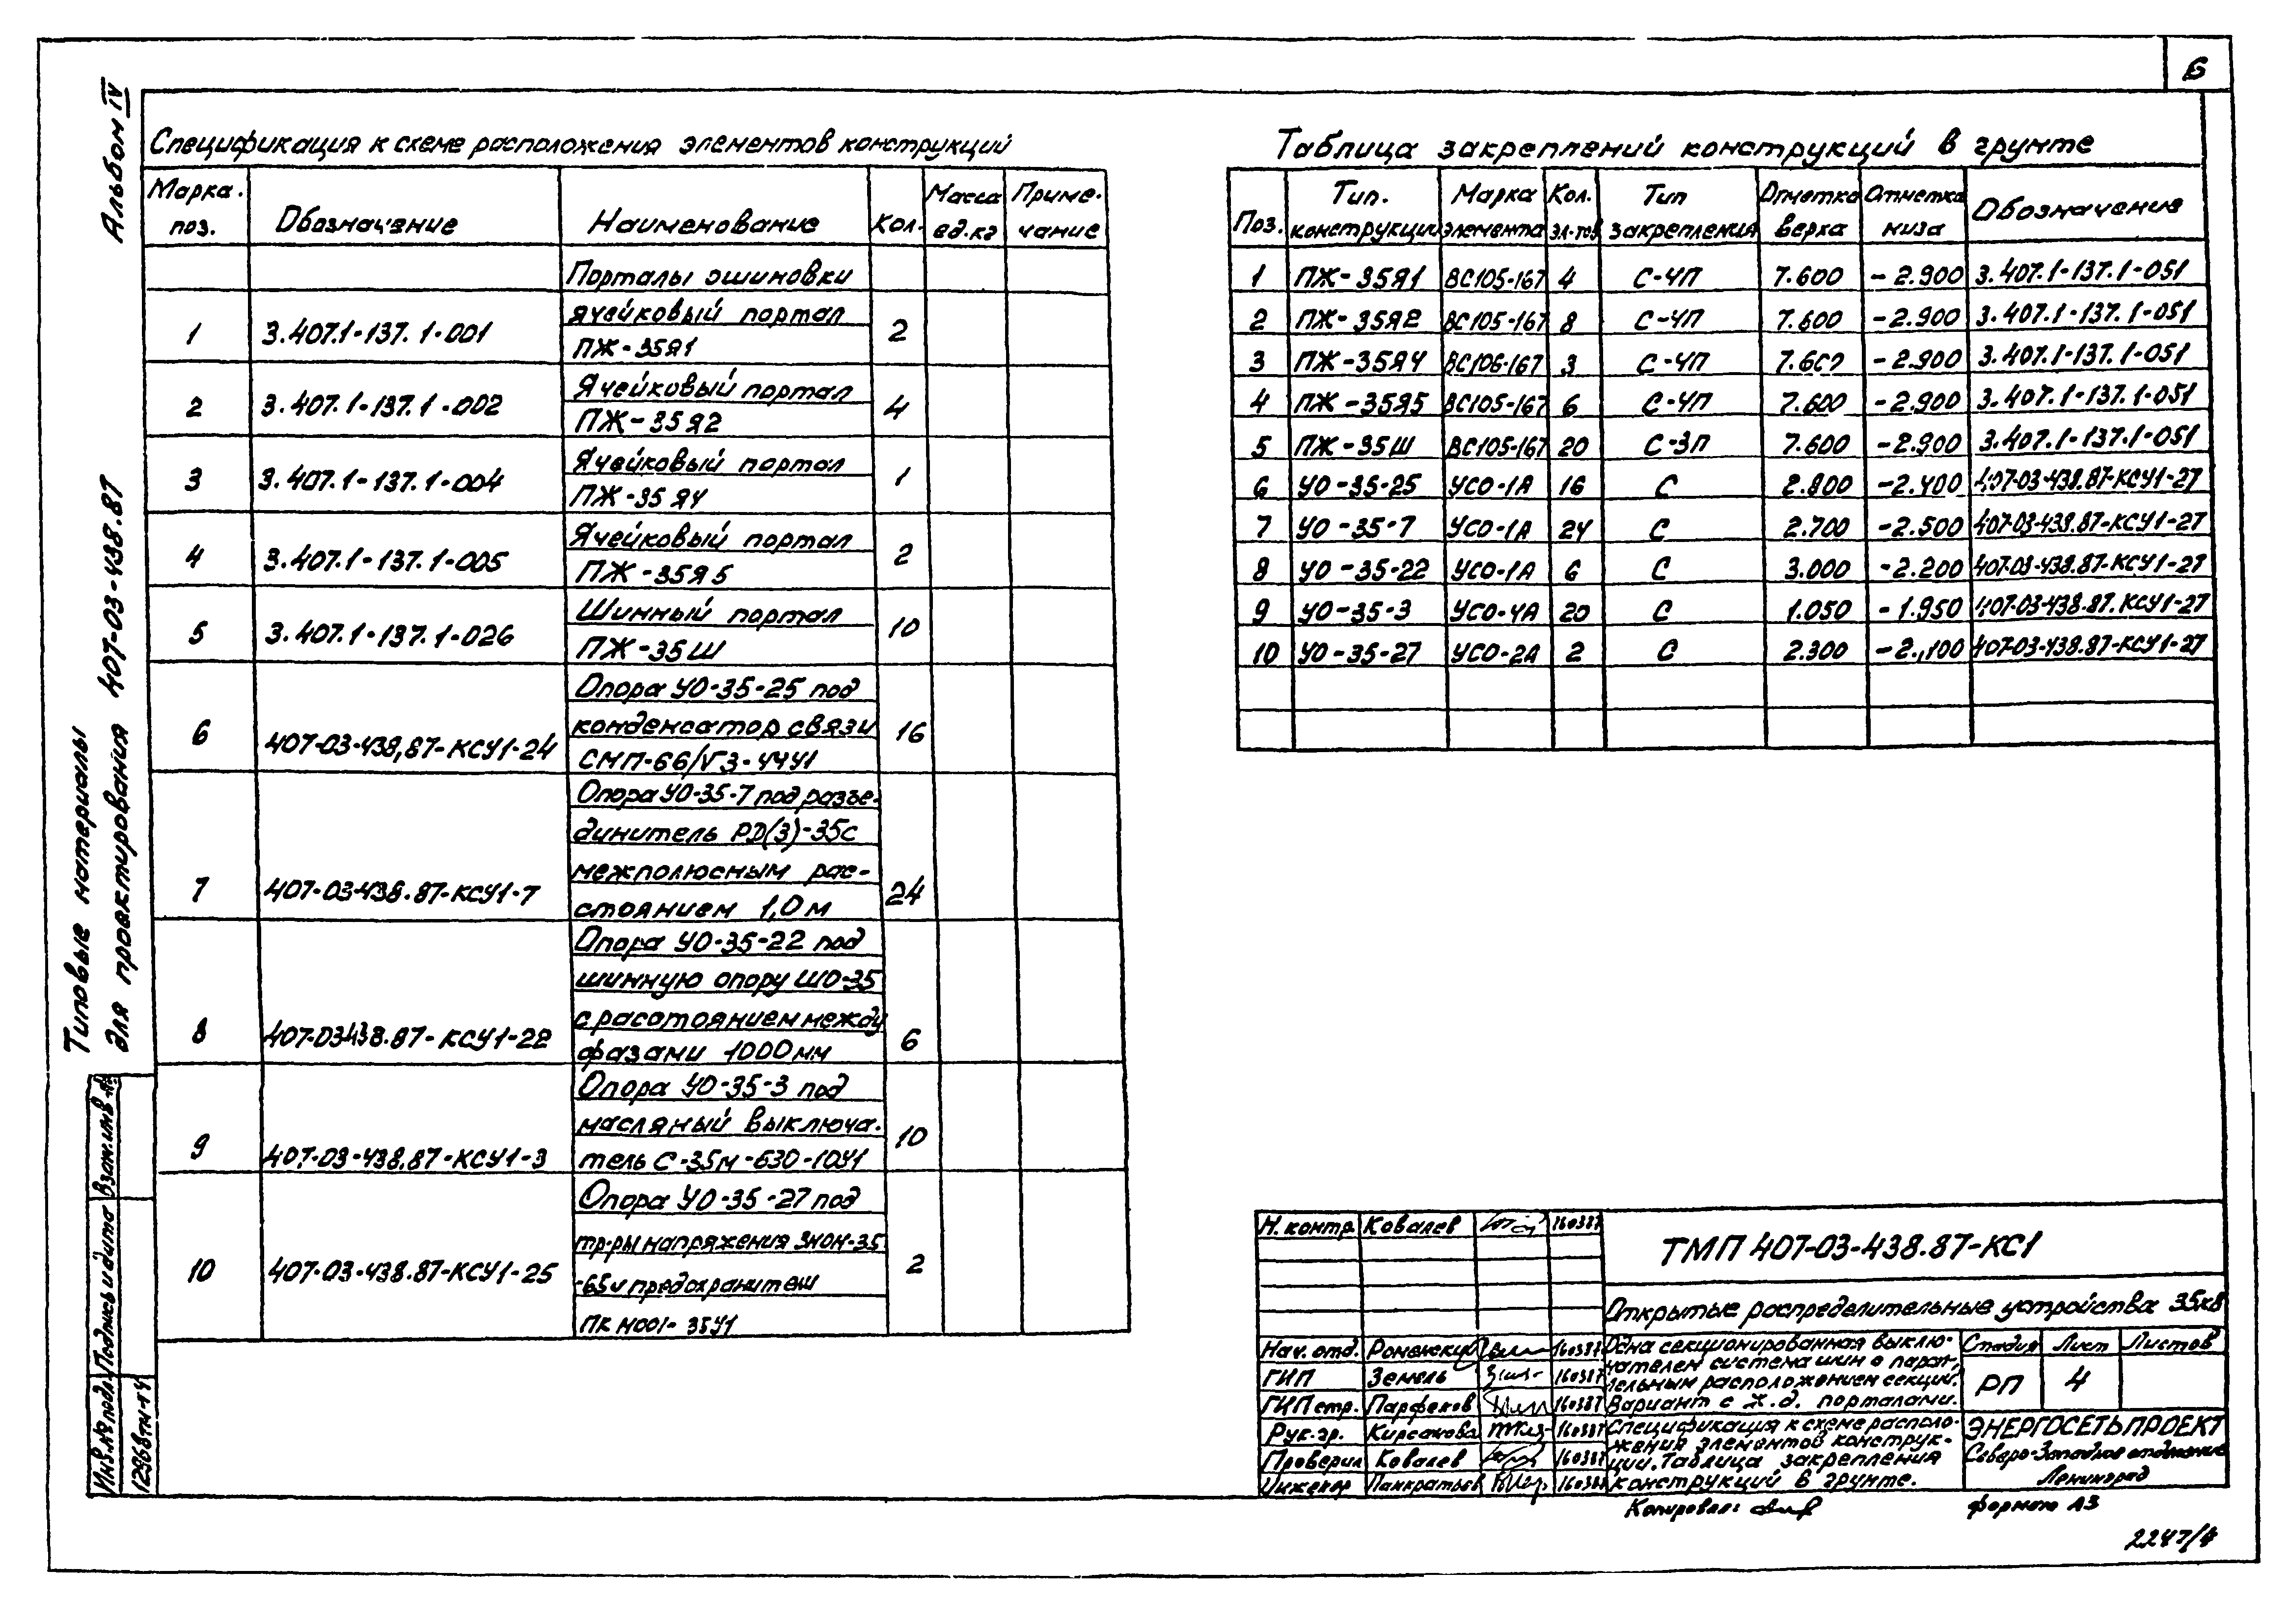 6
Альбом IV
Типовые материалы
для проектирования 407-03-438.87
Спецификация к схеме расположения элементов конструкций
Марка. поз. Обозначение Наименование Кол. Масса ед.кг Приме- чание
Порталы ошиновки
1 3.407.1-137.1-001 ячейковый портал 2
ПЖ-35Я1
2 3.407.1-137.1-002 Ячейковый портал 4
ПЖ-35Я2
3 3.407.1-137.1-004 Ячейковый портал 1
ПЖ-35Я4
4 3.407.1-137.1-005 Ячейковый портал 2
ПЖ-35Я5
5 3.407.1-137.1-026 Шинный портал 10
ПЖ-35Ш
Опора УО-35-25 под
6 407-03-438,87-КСУ1-24 конденсатор связи 16
СМП-66/√3-4,4У1
Опора УО-35-7 под разъе-
динитель РД(З)-35с
7 407-03-438.87-КСУ1-7 межполюсным рас- 24
стоянием 1,0м
Опора УО-35-22 под
шинную опору ШО-35
8 407-03438.87-КСУ1-22 с расстоянием между 6
фазами 1000мм
Опора УО-35-3 под
9 407-03-438.87-КСУ1-3 масляный выключа- 10
тель С-35м-630-10У1
Опора УО-35-27 под
10 407-03-438.87-КСУ1-25 тр-ры напряжения ЗНОМ-35 2
-65 и предохранители
ПК Н001-35У1
Таблица закреплений конструкций в грунте
Поз. Тип. конструкции Марка элемента Кол. эл-тов Тип закрепления Отметка верха Отметка низа Обозначение
1 ПЖ-35Я1 ВС105-167 4 С-4П 7.600 -2.900 3.407.1-137.1-051
2 ПЖ-35Я2 ВС105-167 8 С-4П 7.600 -2.900 3.407.1-137.1-051
3 ПЖ-35Я4 ВС106-167 3 С-4П 7.600 -2.900 3.407.1-137.1-051
4 ПЖ-35Я5 ВС105-167 6 С-4П 7.600 -2.900 3.407.1-137.1-051
5 ПЖ-35Ш ВС105-167 20 С-3П 7.600 -2.900 3.407.1-137.1-051
6 УО-35-25 УСО-1А 16 С 2.800 -2.400 407-03-438.87-КСУ1-27
7 УО-35-7 УСО-1А 24 С 2.700 -2.500 407-03-438.87-КСУ1-27
8 УО-35-22 УСО-1А 6 С 3.000 -2.200 407-03-438.87-КСУ1-27
9 УО-35-3 УСО-4А 20 С 1.050 -1.950 407-03-438.87.КСУ1-27
10 УО-35-27 УСО-2А 2 С 2.300 -2.,100 407-03-438.87-КСУ1-27
Взам.инв.№
Подпись и дата
Инв.№ подл.
12968тм-т4
Н.контр. Ковалев 160387
ТМП 407-03-438.87-КС1
Открытые распределительные устройства 35кВ
Нач.отд. Роменский 160387
ГИП Земель 160387
ГИП стр. Парфенов 160387
Рук.гр. Кирсанова 160387
Проверил Ковалев 160387
Инженер Панкратьев 160387
Одна секционированная выклю-
чателем система шин с парал-
лельным расположением секций.
Вариант с ж.д. порталами.
Спецификация к схеме располо-
жения элементов конструк-
ций. Таблица закрепления
конструкций в грунте.
Стадия Лист Листов
РП 4
ЭНЕРГОСЕТЬПРОЕКТ
Северо-Западное отделение
Ленинград
Копировал:
формат А3
2247/4